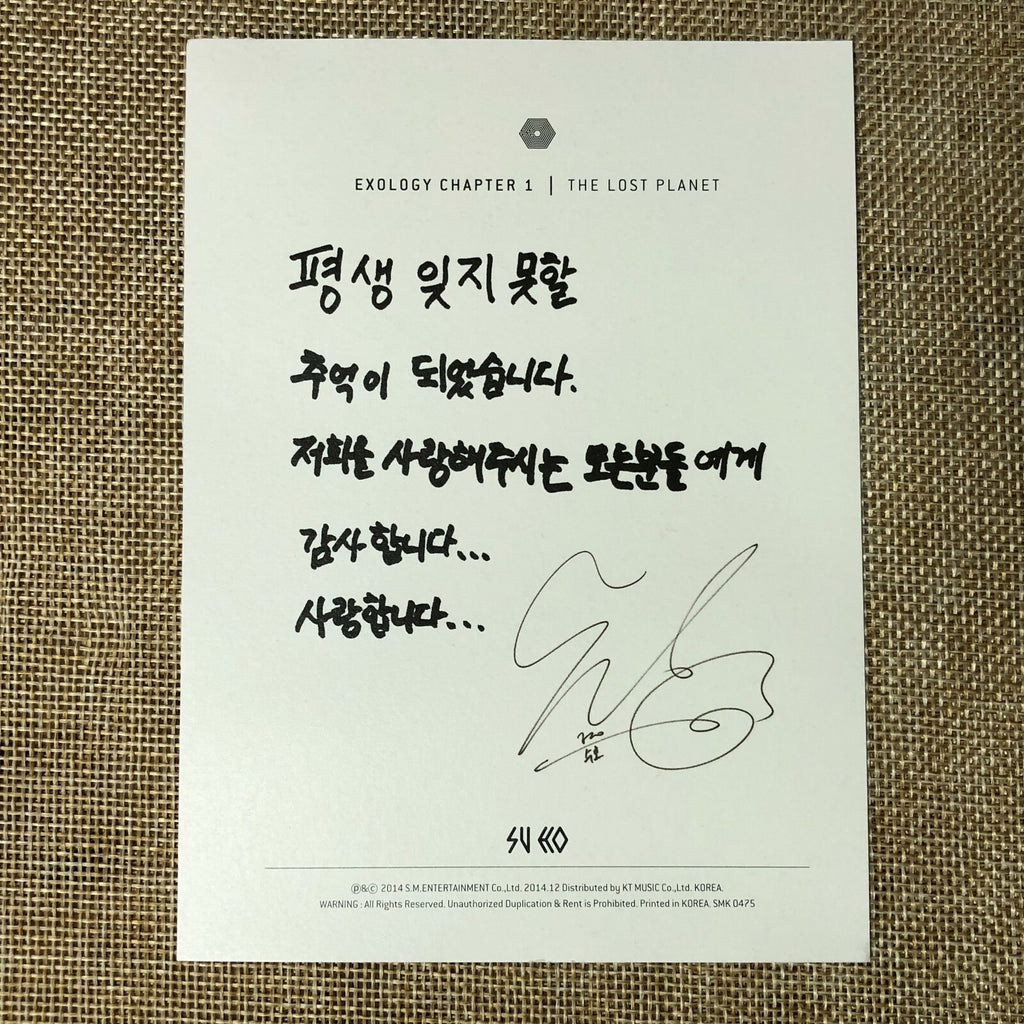 EXOLOGY CHAPTER 1 | THE LOST PLANET
평생 잊지 못할
추억이 되었습니다.
저희를 사랑해주시는 모든분들에게
감사합니다...
사랑합니다...
수호
SUHO
℗&© 2014 S.M.ENTERTAINMENT Co.,Ltd. 2014.12 Distributed by KT MUSIC Co.,Ltd. KOREA.
WARNING : All Rights Reserved. Unauthorized Duplication & Rent is Prohibited. Printed in KOREA. SMK 0475